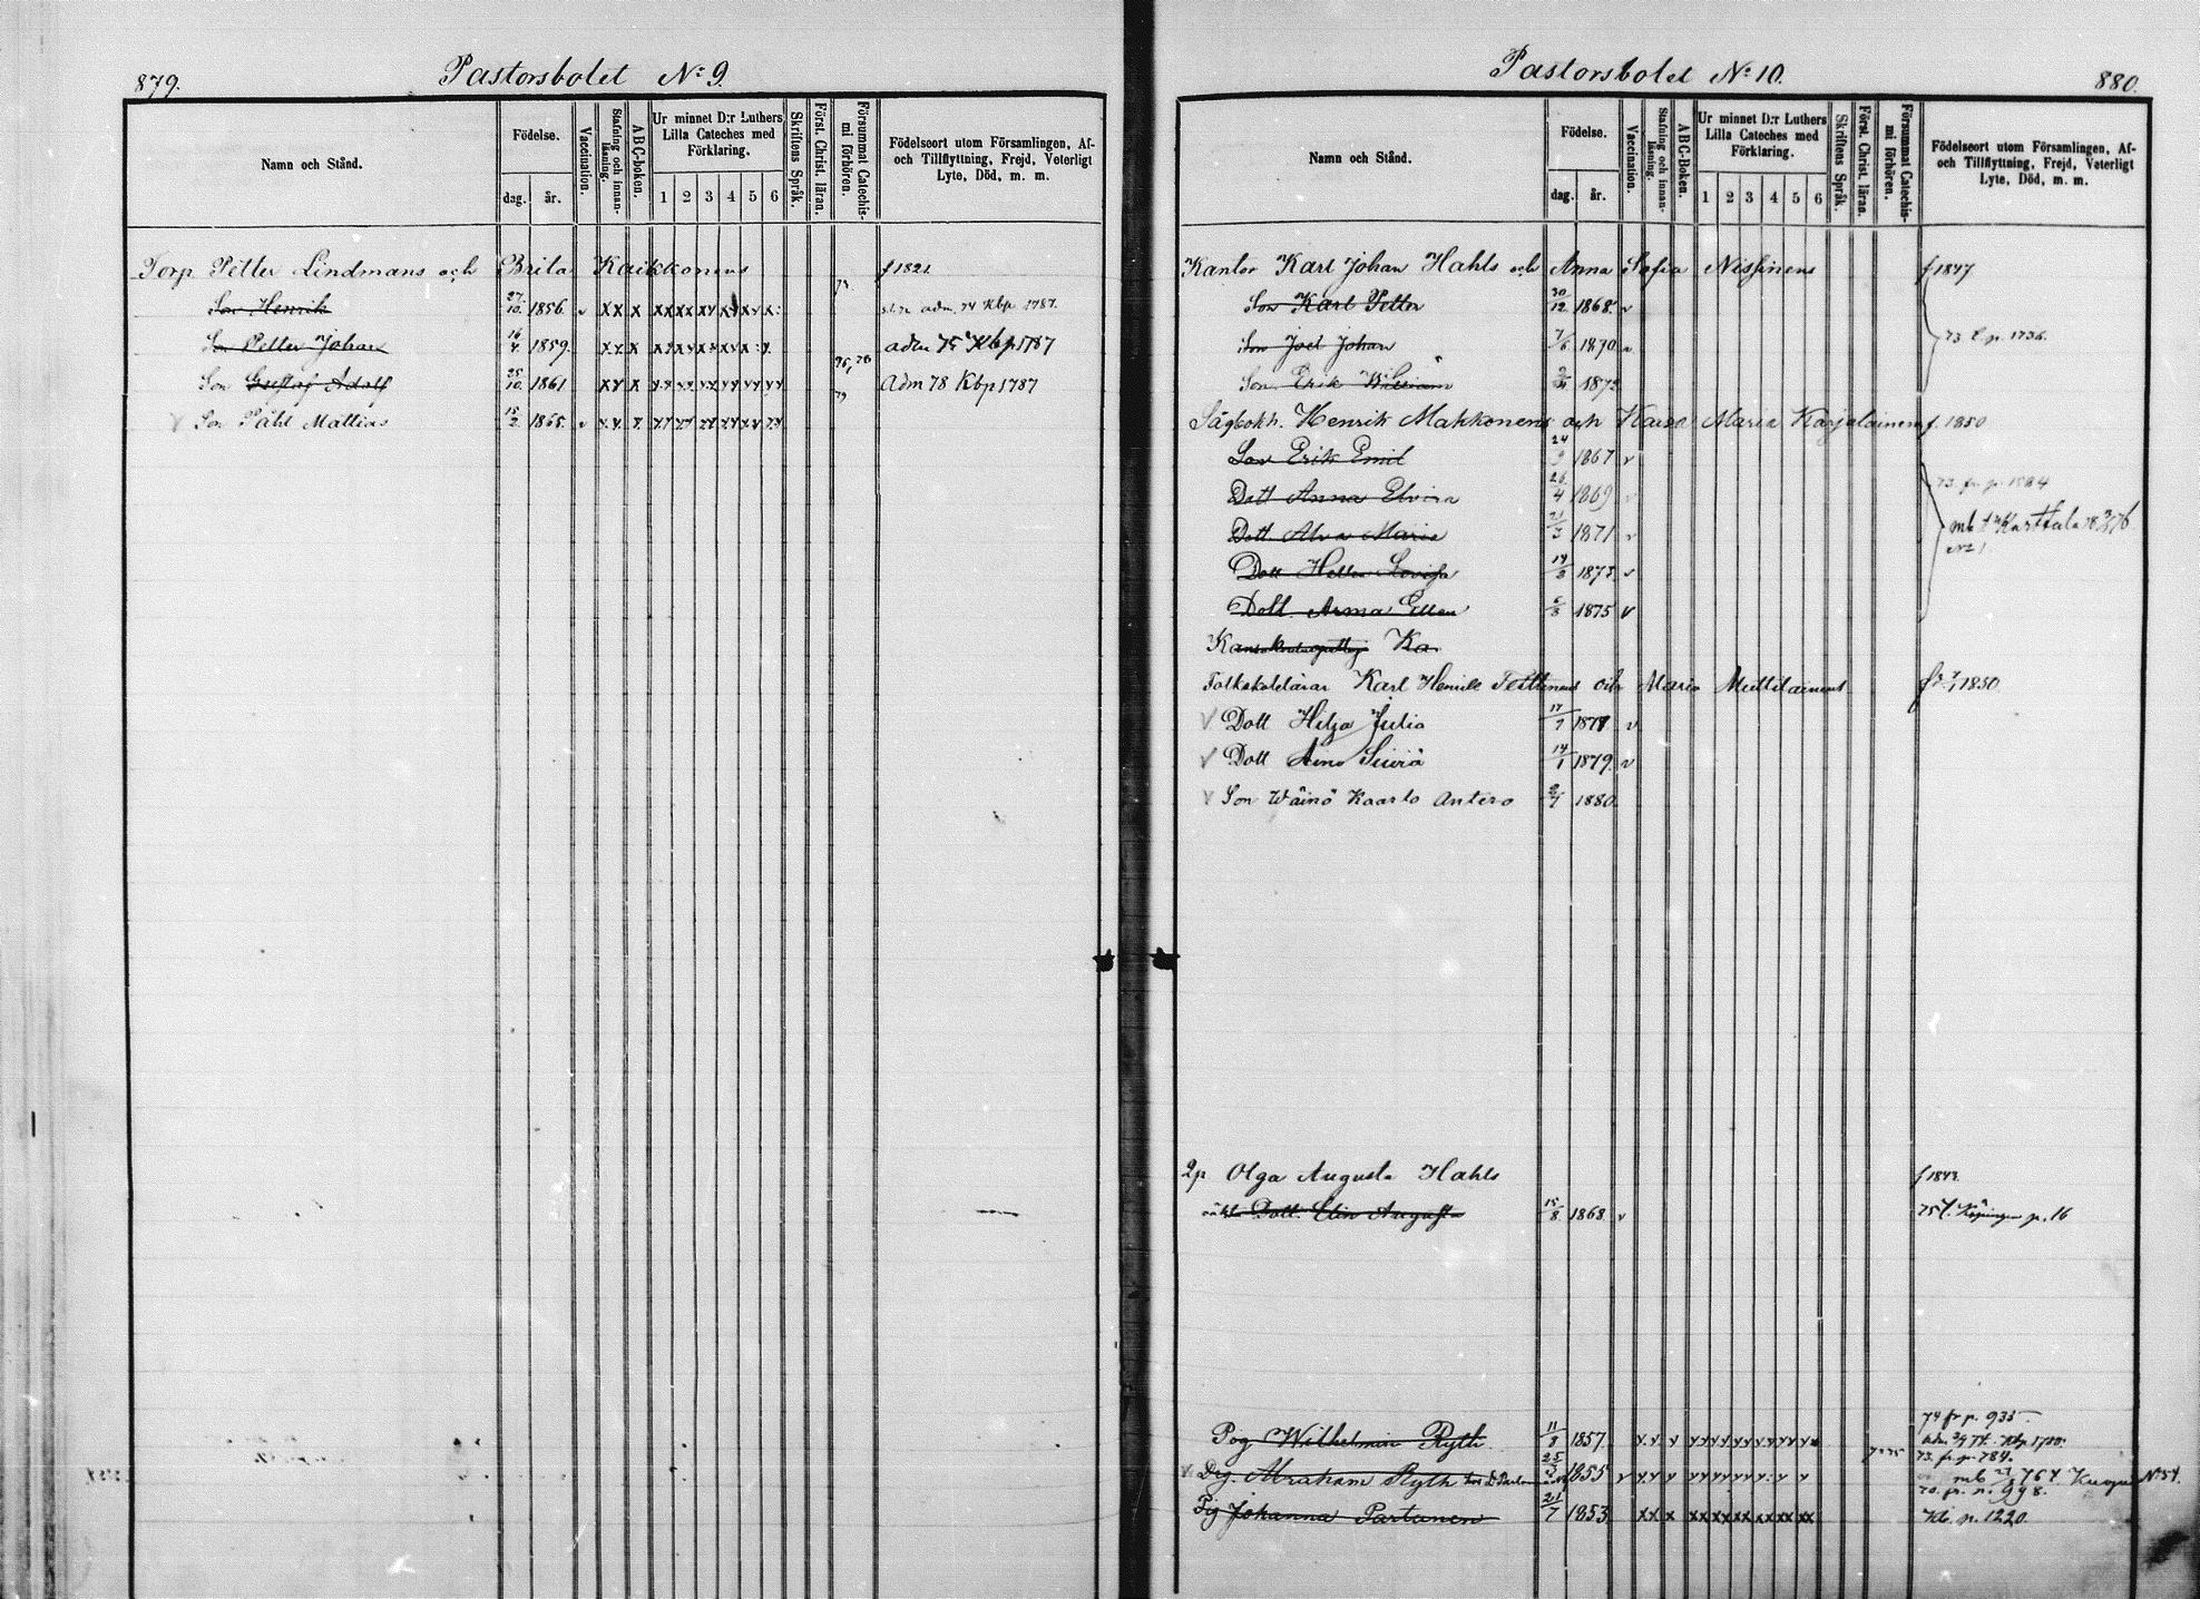 879.
Pastorsbolet No 9.
Namn och Stånd.
Födelse.
dag. år.
Vaccination.
Stafning och innan-läsning.
ABC-boken.
Ur minnet D:r Luthers Lilla Cateches med Förklaring.
1 2 3 4 5 6
Skriftens Språk.
Först. Christ. läran.
Försummat Catechis-mi förhören.
Födelseort utom Församlingen, Af-
och Tillflyttning, Frejd, Veterligt
Lyte, Död, m. m.
Torp Petter Lindmans och Brita Kaikkonens f 1821
Son Henrik 27/10 1856 v xx x xx xx xx adm. 74 Kbp 1787.
Son Petter Johan 16/4 1859. adm 75 Kbp 1787
Son Gustaf Adolf 25/10 1861 xx x 75, 76 Adm 78 Kbp 1787
V Son Påhl Mattias 15/2 1865. v 79
Pastorsbolet No 10.
880.
Namn och Stånd.
Födelse.
dag. år.
Vaccination.
Stafning och innan-läsning.
ABC-Boken.
Ur minnet D:r Luthers Lilla Cateches med Förklaring.
1 2 3 4 5 6
Skriftens Språk.
Först. Christ. läran.
Försummat Catechis-mi förhören.
Födelseort utom Församlingen, Af-
och Tillflyttning, Frejd, Veterligt
Lyte, Död, m. m.
Kantor Karl Johan Hahls och Anna Sofia Nissinens f 1847
Son Karl Petter 30/12 1868. v
Son Joel Johan 7/6 1870 v 73 p. 1736.
Son Erik William 1872
Sågbokh. Henrik Makkonens och Kaisa Maria Karjalainens f. 1850
Son Erik Emil 24/9 1867 v
Dott Anna Elvira 26/4 1869 v 73. fr. p. 1584
Dott Alva Maria 21/3 1871 v mb t Karttula
Dott Hellin Lovisa 14/3 1873. v
Dott. Arma Ellen 6/8 1875 v
Ka
Folkskolelärar Karl Henrik Tettinens och Maria Multilainens f. 1850
V Dott Hilja Julia 17/7 1877 v
V Dott Aino Siiviä 14/1 1879. v
V Son Wäinö Kaarlo Antero 2/7 1880
Qp Olga Augusta Hahls f 1843
oäkt. Dott. Elin Augusta 15/8 1868 v 75 t. Köpingen p. 16
Pog Wilhelmin Ryth 11/8 1857. 74 fr p. 935.
Drg. Abraham Ryth 1855 v 73. fr. p. 784. mb Kuopio No 54.
Pig Johanna Partanen 21/7 1853 xx x xx xx xx xx xx xx 70. fr. p. 948. Kb. p. 1220.